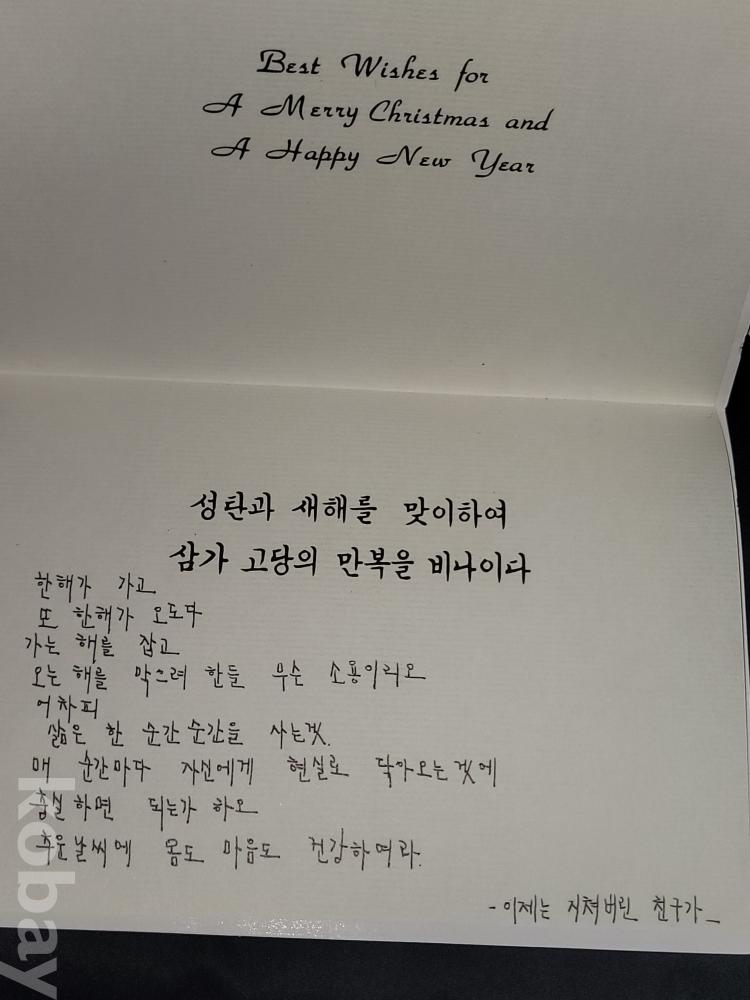 Best Wishes for
A Merry Christmas and
A Happy New Year
성탄과 새해를 맞이하여
삼가 고당의 만복을 비나이다
한해가 가고
또 한해가 오도다
가는 해를 잡고
오는 해를 막으려 한들 무슨 소용이리오
어차피
삶은 한 순간 순간을 사는것.
매 순간마다 자신에게 현실로 닥아오는것에
충실하면 되는가 하오
추운날씨에 몸도 마음도 건강하여라.
- 이제는 지쳐버린 친구가 -
kobay